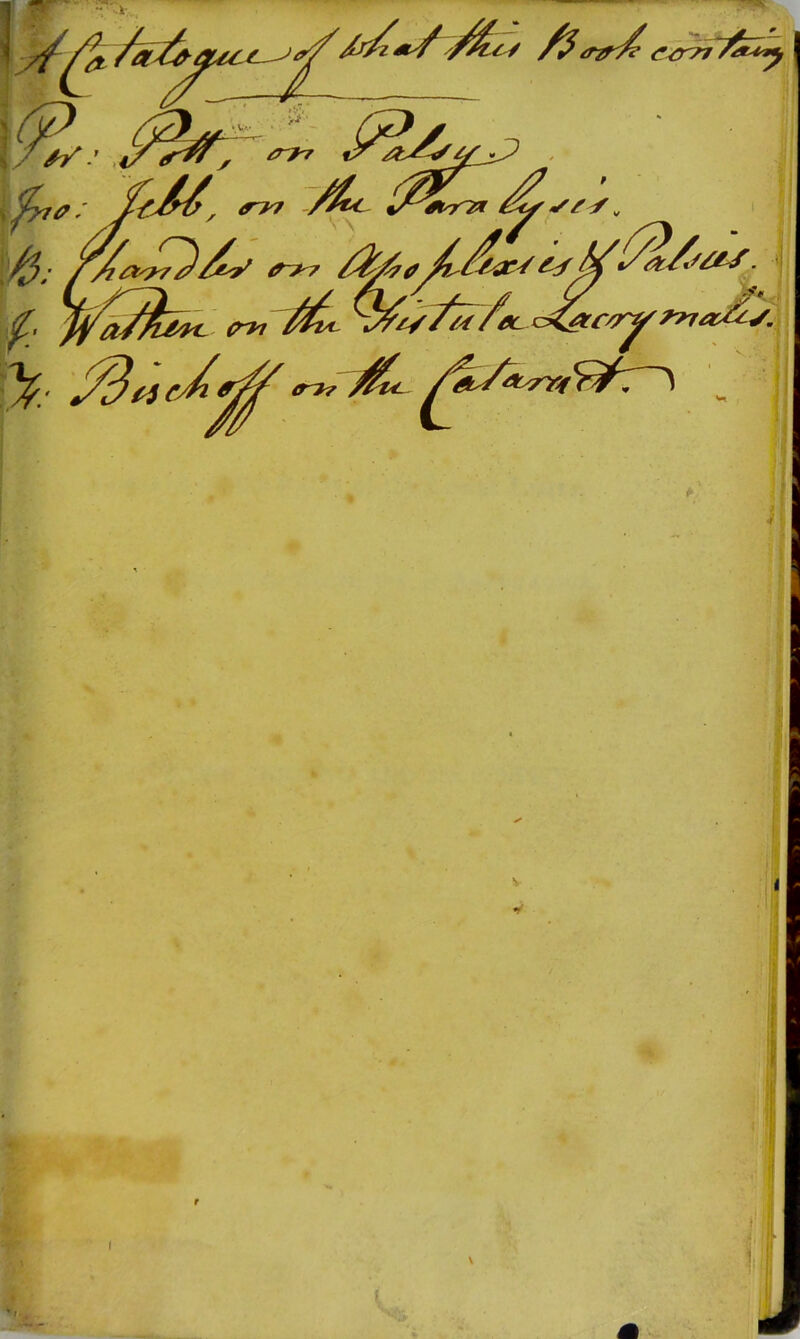 A Catalogue of what this Book contains
Dr: Pott, on Palsy.
Jno: Tell, on the Paralysis.
B: Chandler on Apoplexies & Palsies.
J: Wathen on the Fistula Lacrymalis.
on the Cataract.